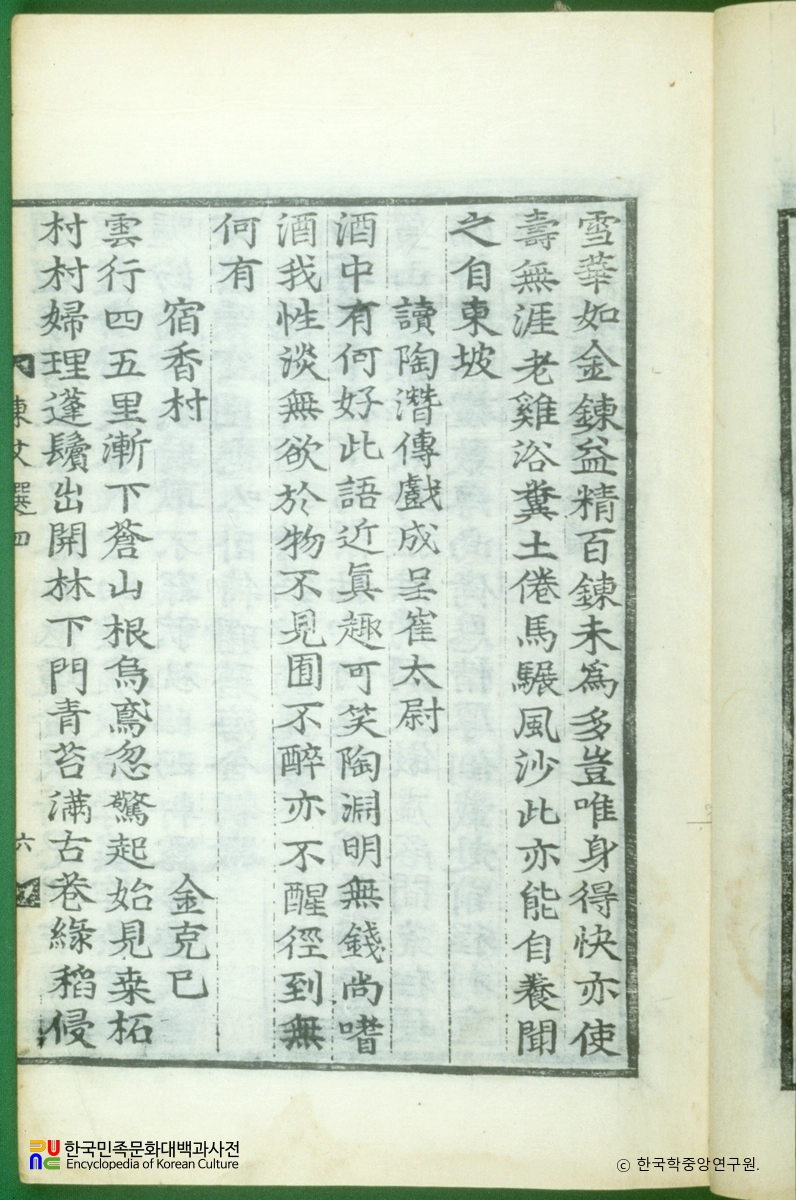 雪華如金鍊益精百鍊未爲多豈唯身得快亦使
壽無涯老雞浴糞土倦馬驏風沙此亦能自養聞
之自東坡
讀陶潛傳戱成呈崔太尉
酒中有何好此語近眞趣可笑陶淵明無錢尚嗜
酒我性淡無欲於物不見囿不醉亦不醒徑到無
何有
宿香村
金克已
雲行四五里漸下蒼山根烏鳶忽驚起始見桒柘
村村婦理蓬鬢出開林下門青苔滿古巷綠稻侵
東文選四
六
한국민족문화대백과사전
Encyclopedia of Korean Culture
© 한국학중앙연구원.